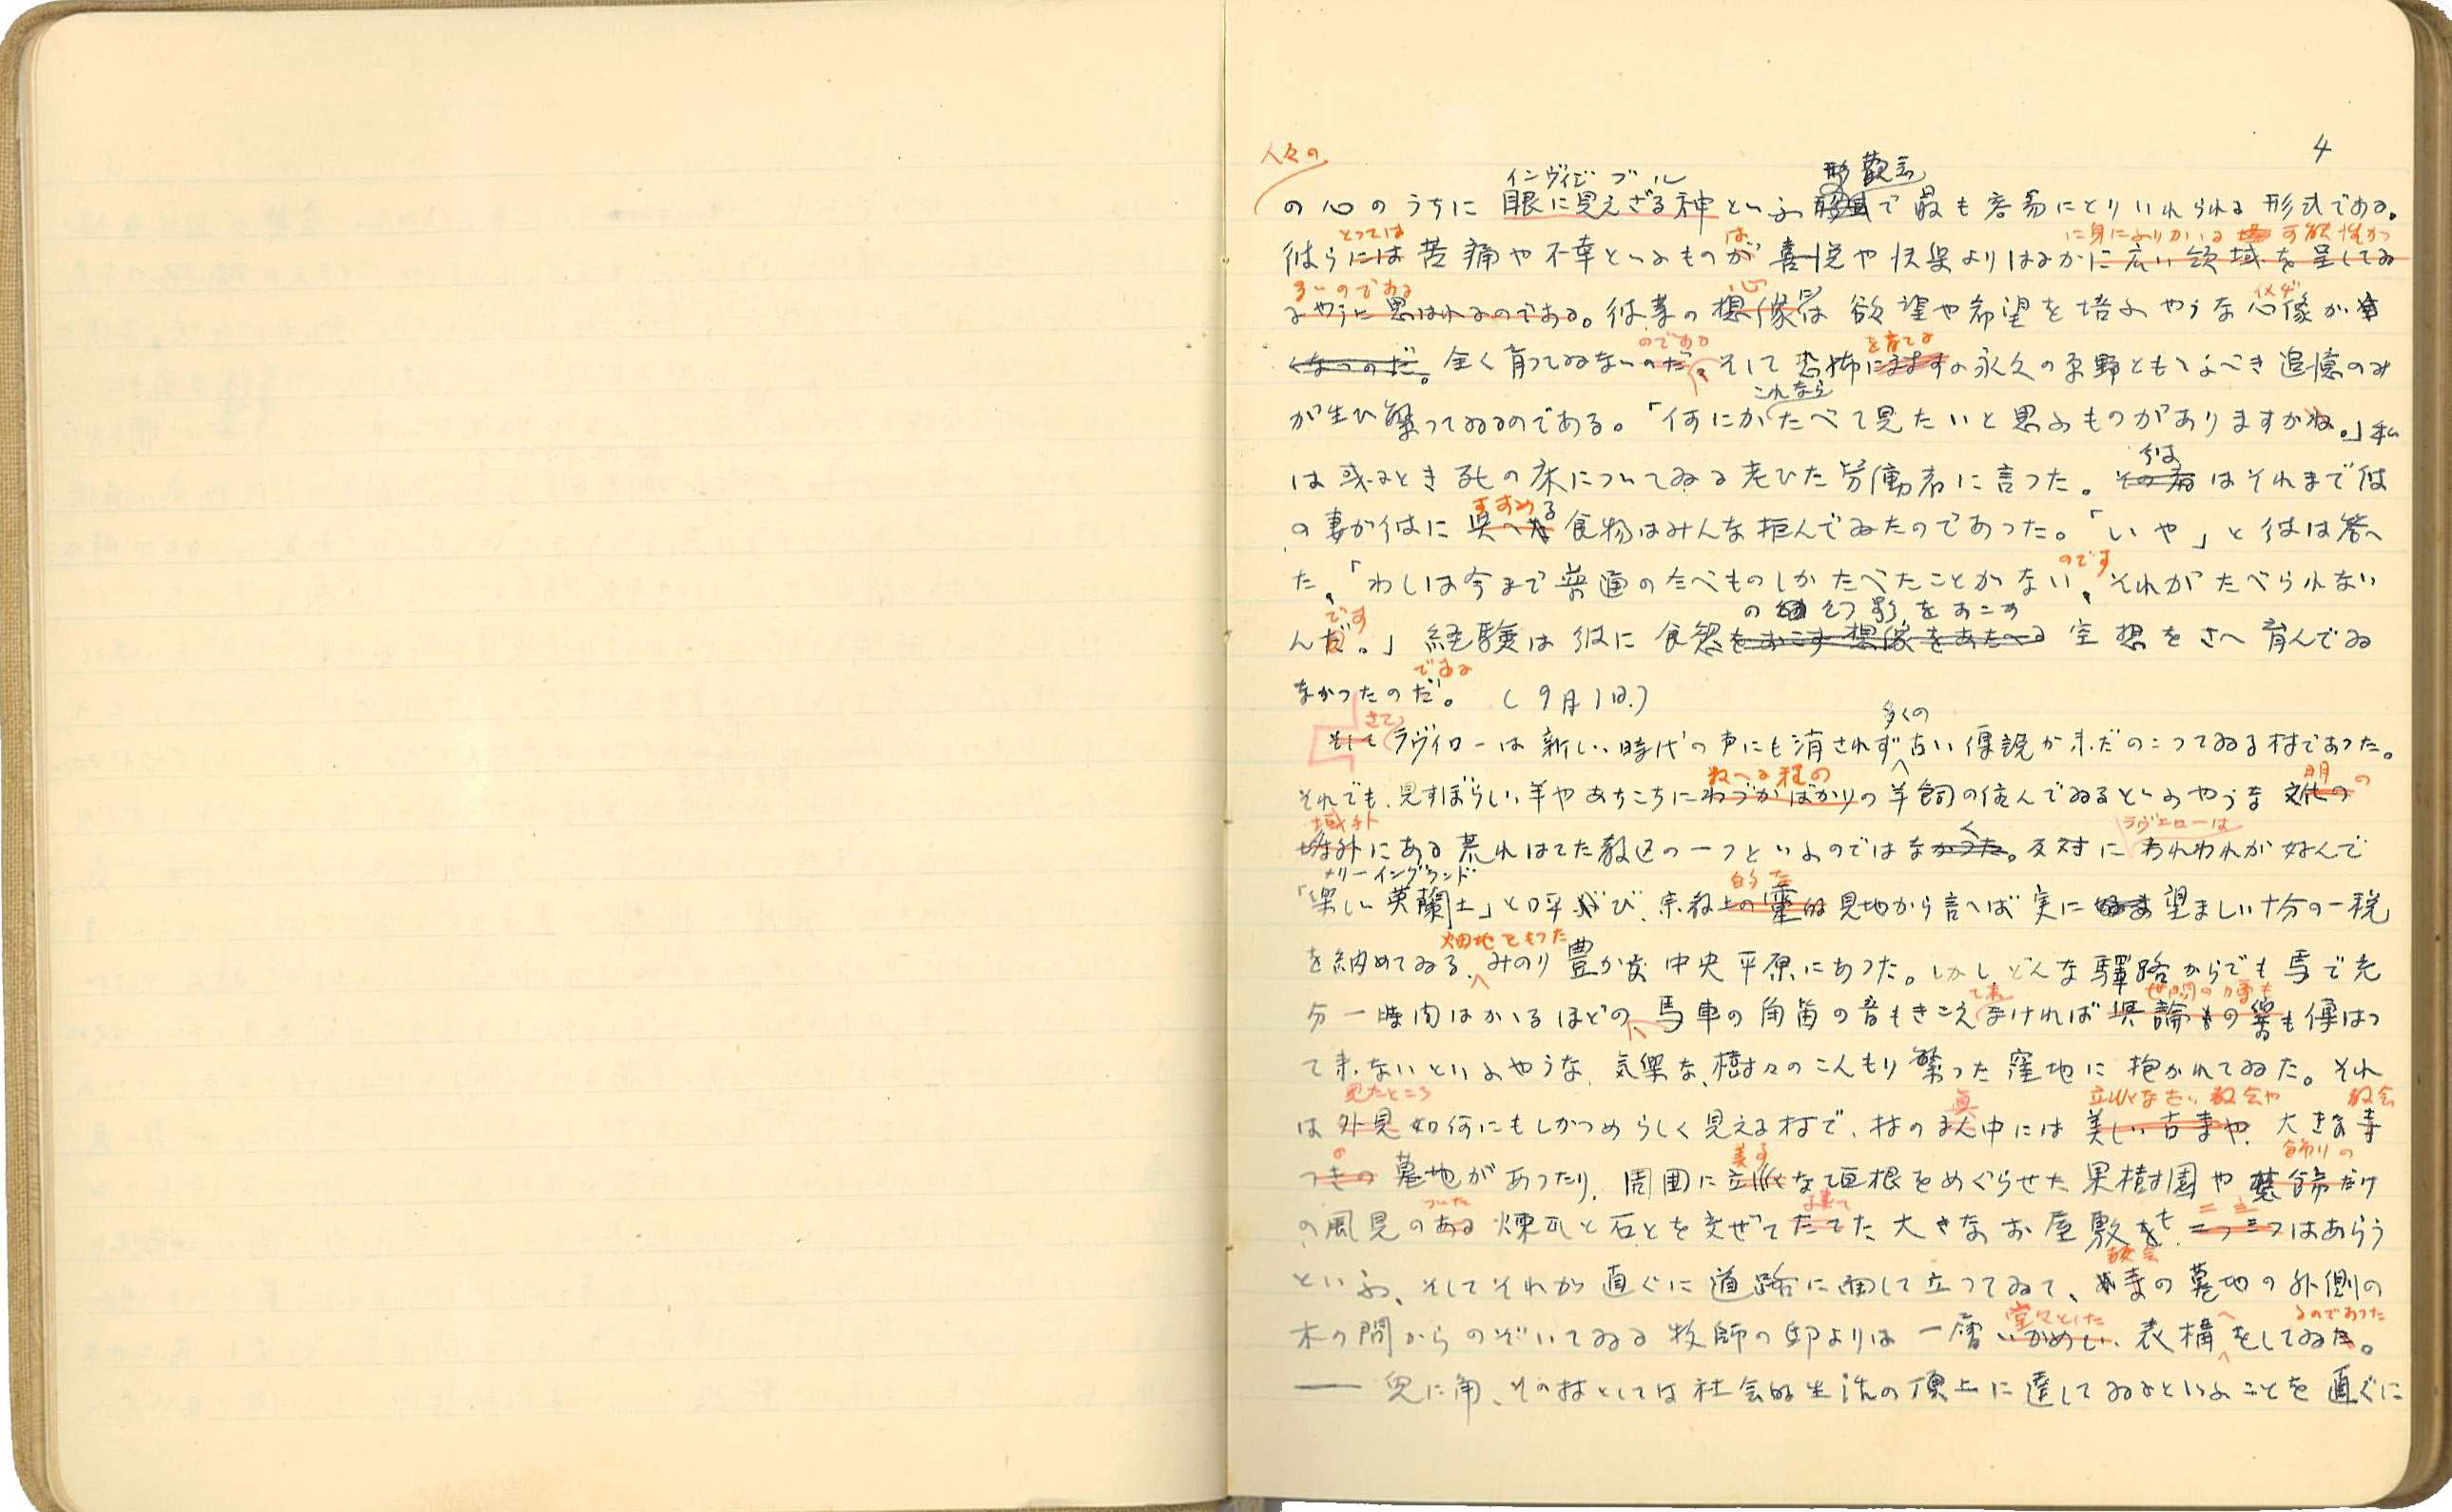 4
人々の
インヴィジブル 形 観念
の心のうちに 眼に見えざる神といふ で最も容易にとりいれられる形式である。
とつては は に身にふりかゝる 可能性が
彼らには苦痛や不幸といふものが喜悦や快楽よりはるかに広い領域を呈してゐ
多いのである 心
るやうに思はれるのである。彼等の想像は欲望や希望を培ふやうな心像が
のである を育てる
くなつのだ。全く育つてゐないのだ。そして恐怖 の永久の草野ともいふべき追憶のみ
これなら
が生ひ繁つてゐるのである。「何にかたべて見たいと思ふものがありますかね。」私
彼
は或るとき死の床についてゐる老ひた労働者に言つた。その者はそれまで彼
すすめる
の妻が彼に与へた食物はみんな拒んでゐたのであつた。「いや」と彼は答へ
のです
た。「わしは今まで普通のたべものしかたべたことがない。それがたべられない
です の 幻影をおこす
んだ。」経験は彼に食慾をおこす想像をあたへる空想をさへ育んでゐ
である
なかつたのだ。(9月1日.)
さて 多くの
そしてラヴイローは新しい時代の声にも消されず古い傳説が未だのこつてゐる村であつた。
ねへる程の 明の
それでも、見すぼらしい羊やあちこちにわづかばかりの羊飼の住んでゐるといふやうな文化の
域外 く ラヴエローは
埒外にある荒れはてた教区の一つといふのではなかつた。反対にわれわれが好んで
メリーイングランド 的な
「楽しい英蘭土」と呼び、宗教上の霊的見地から言へば実に 望ましい十分の一税
畑地をもつた
を納めてゐる、みのり豊かな中央平原にあつた。しかしどんな驛路からでも馬で充
て来 世間の噂も
分一時間はかゝるほどの、馬車の角笛の音もきこえなければ世論の響も傳はつ
て来ないといふやうな、気楽な、樹々のこんもり繁つた窪地に抱かれてゐた。それ
見たところ 真 立派な古い教会や 教会
は外見如何にもしかつめらしく見える村で、村のまん中には美しい古寺や、大きな寺
の 美事 飾りの
つきの墓地があつたり、周囲に立派な垣根をめぐらせた果樹園や装飾だけ
ついた 建て 二三
の風見のある煉瓦と石とを交ぜてたてた大きなお屋敷も二つ三つはあらう
教会
といふ、そしてそれが直ぐに道路に面して立つてゐて、お寺の墓地の外側の
堂々とした へ るのであつた
木の間からのぞいてゐる牧師の邸よりは一層いかめしい表構をしてゐた。
── 兎に角、その村としては社会的生活の頂上に達してゐるといふことを直ぐに